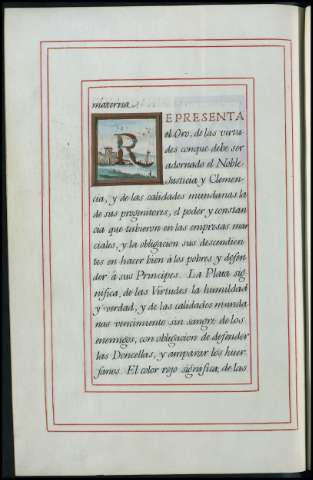 materna.
REPRESENTA
el Oro, de las virtu-
des conque debe ser
adornado el Noble
Justicia y Clemen-
cia, y de las calidades mundanas la
de sus progenitores, el poder y constan
cia que tubieron en las empresas mar
ciales, y la obligacion sus descendien
tes en hacer bien à los pobres y defen
der à sus Principes. La Plata sig
nifica, de las Virtudes la humildad
y verdad; y de las calidades munda
nas vencimiento sin sangre de los
enemigos, con obligacion de defender
las Doncellas, y amparar los huer
fanos. El color rojo significa, de las